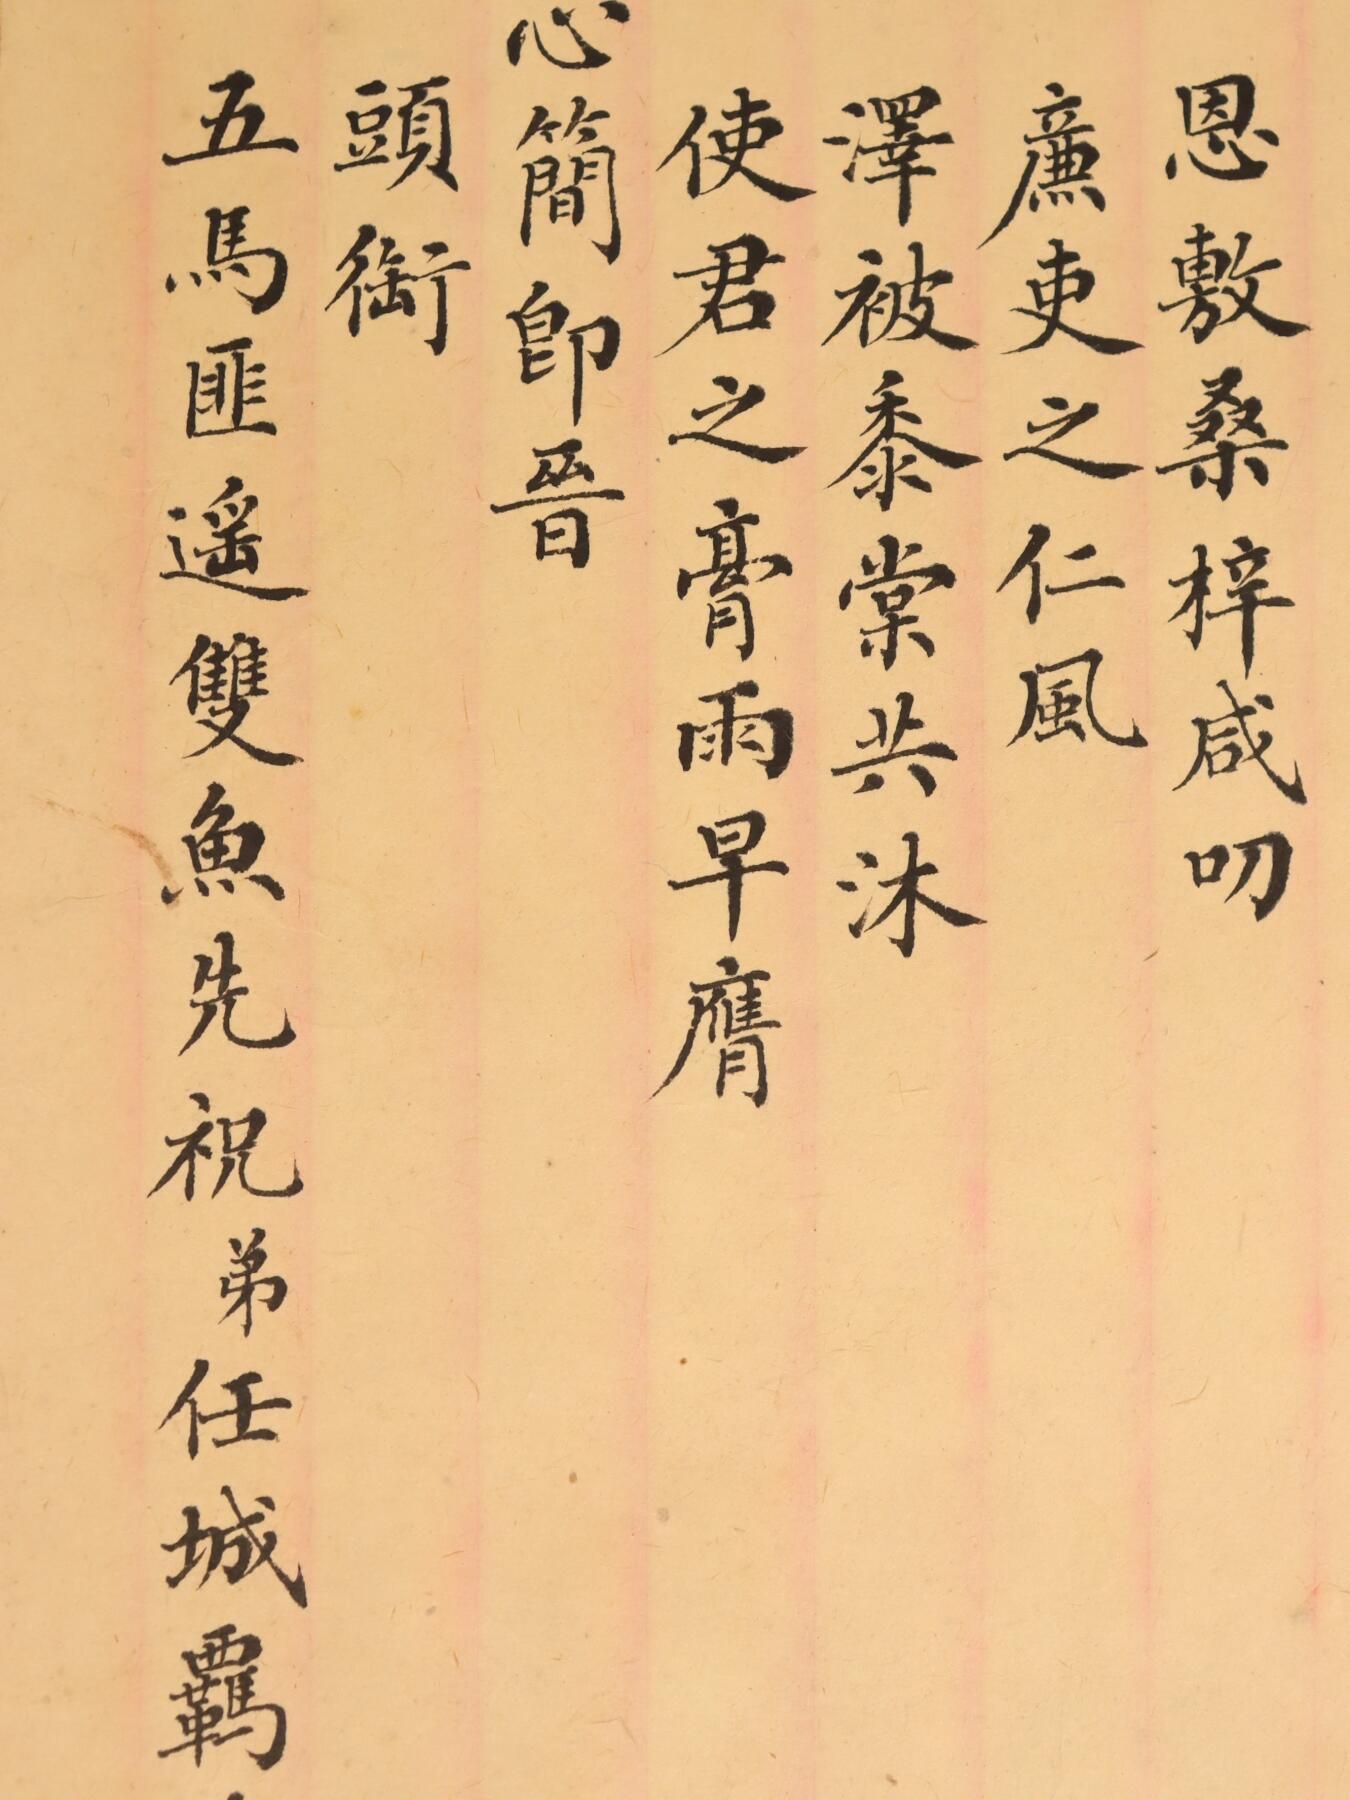 恩敷桑梓咸叨
廉吏之仁風
澤被黍棠共沐
使君之膏雨早膺
心簡即晉
頭銜
五馬匪遥雙魚先祝弟任城羈